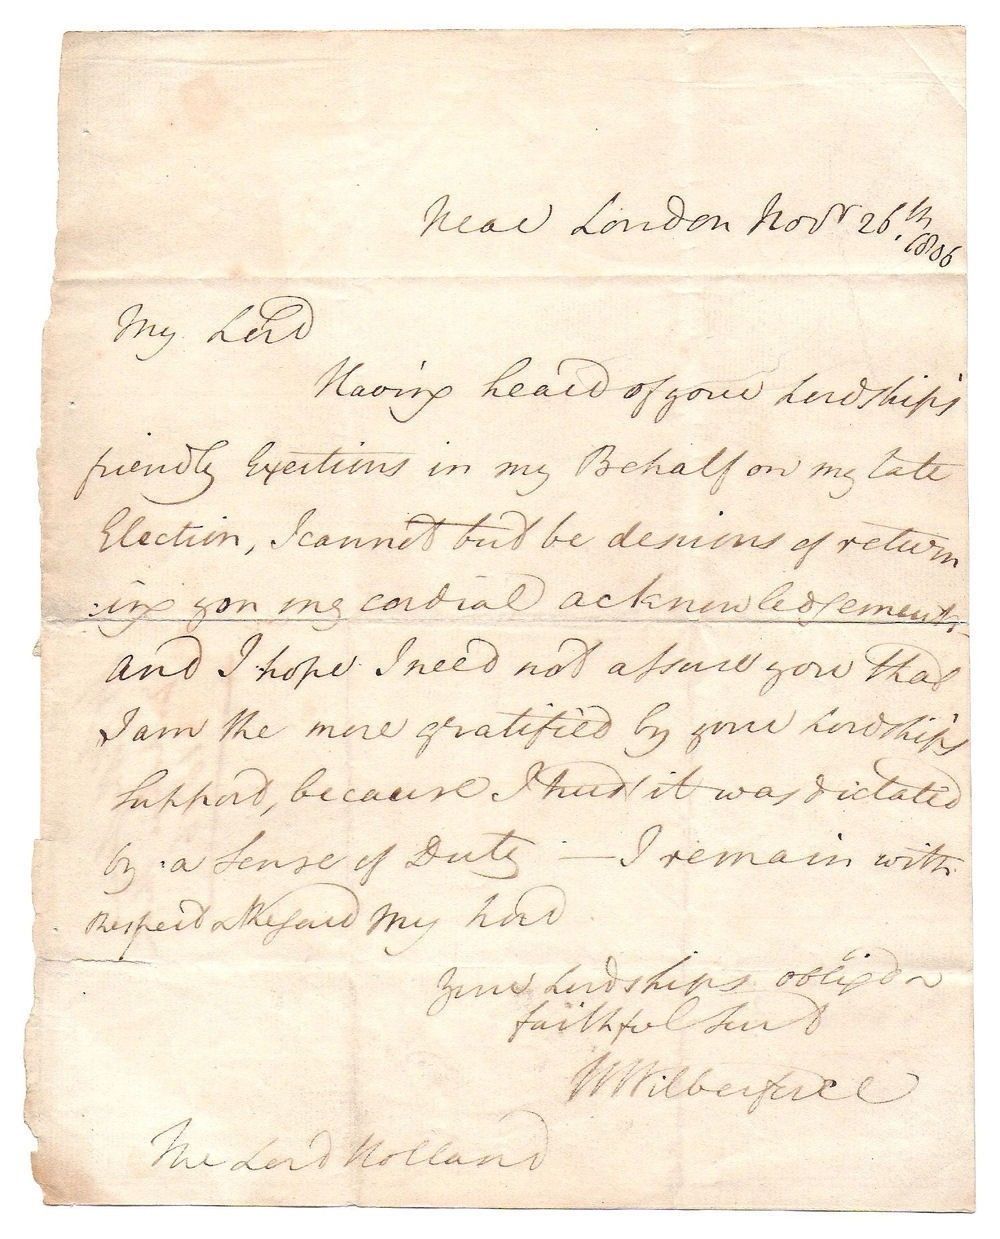 Near London Novr 26th
1806
My Lord
Having heard of your Lordship's
friendly Exertions in my Behalf on my late
Election, I cannot but be desirous of return
:ing you my cordial acknowledgements
and I hope I need not assure you that
I am the more gratified by your Lordship's
Support, because I trust it was dictated
by a Sense of Duty — I remain with
Respect & Regard My Lord
Your Lordships obligd &
faithful Servt
W Wilberforce
The Lord Holland